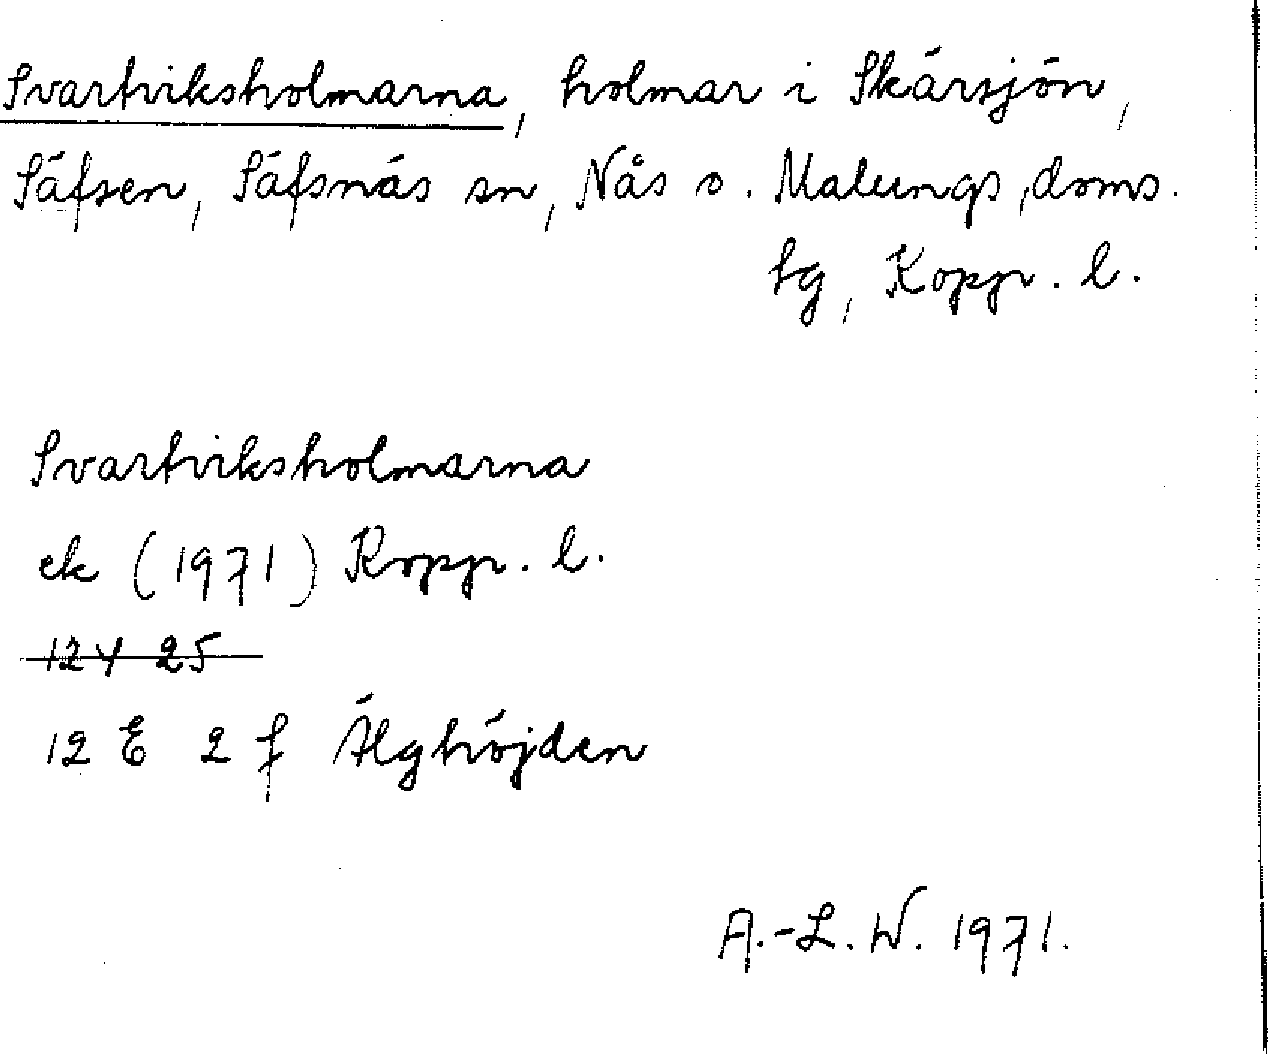 Svartviksholmarna, holmar i Skärsjön,
Säfsen, Säfsnäs sn, Nås o. Malungs doms.
tg, Kopp. l.
Svartviksholmarna
ek (1971) Kopp. l.
12Y 25
12 E 2 f Älghöjden
A.-L. W. 1971.